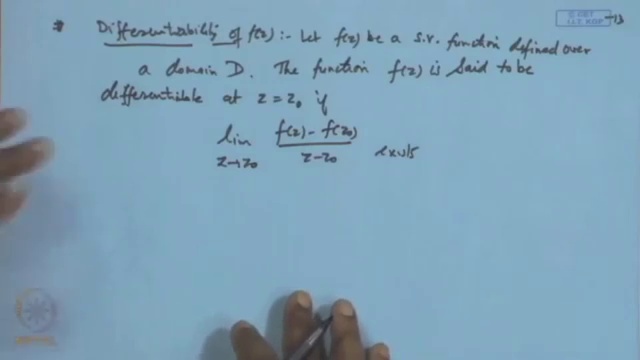 * Differentiability of f(z) :- Let f(z) be a s.v. function defined over
a domain D. The function f(z) is said to be
differentiable at z = z₀ if
lim z→z₀ f(z) - f(z₀) / z - z₀ exists
© CET
I.I.T. KGP
-13